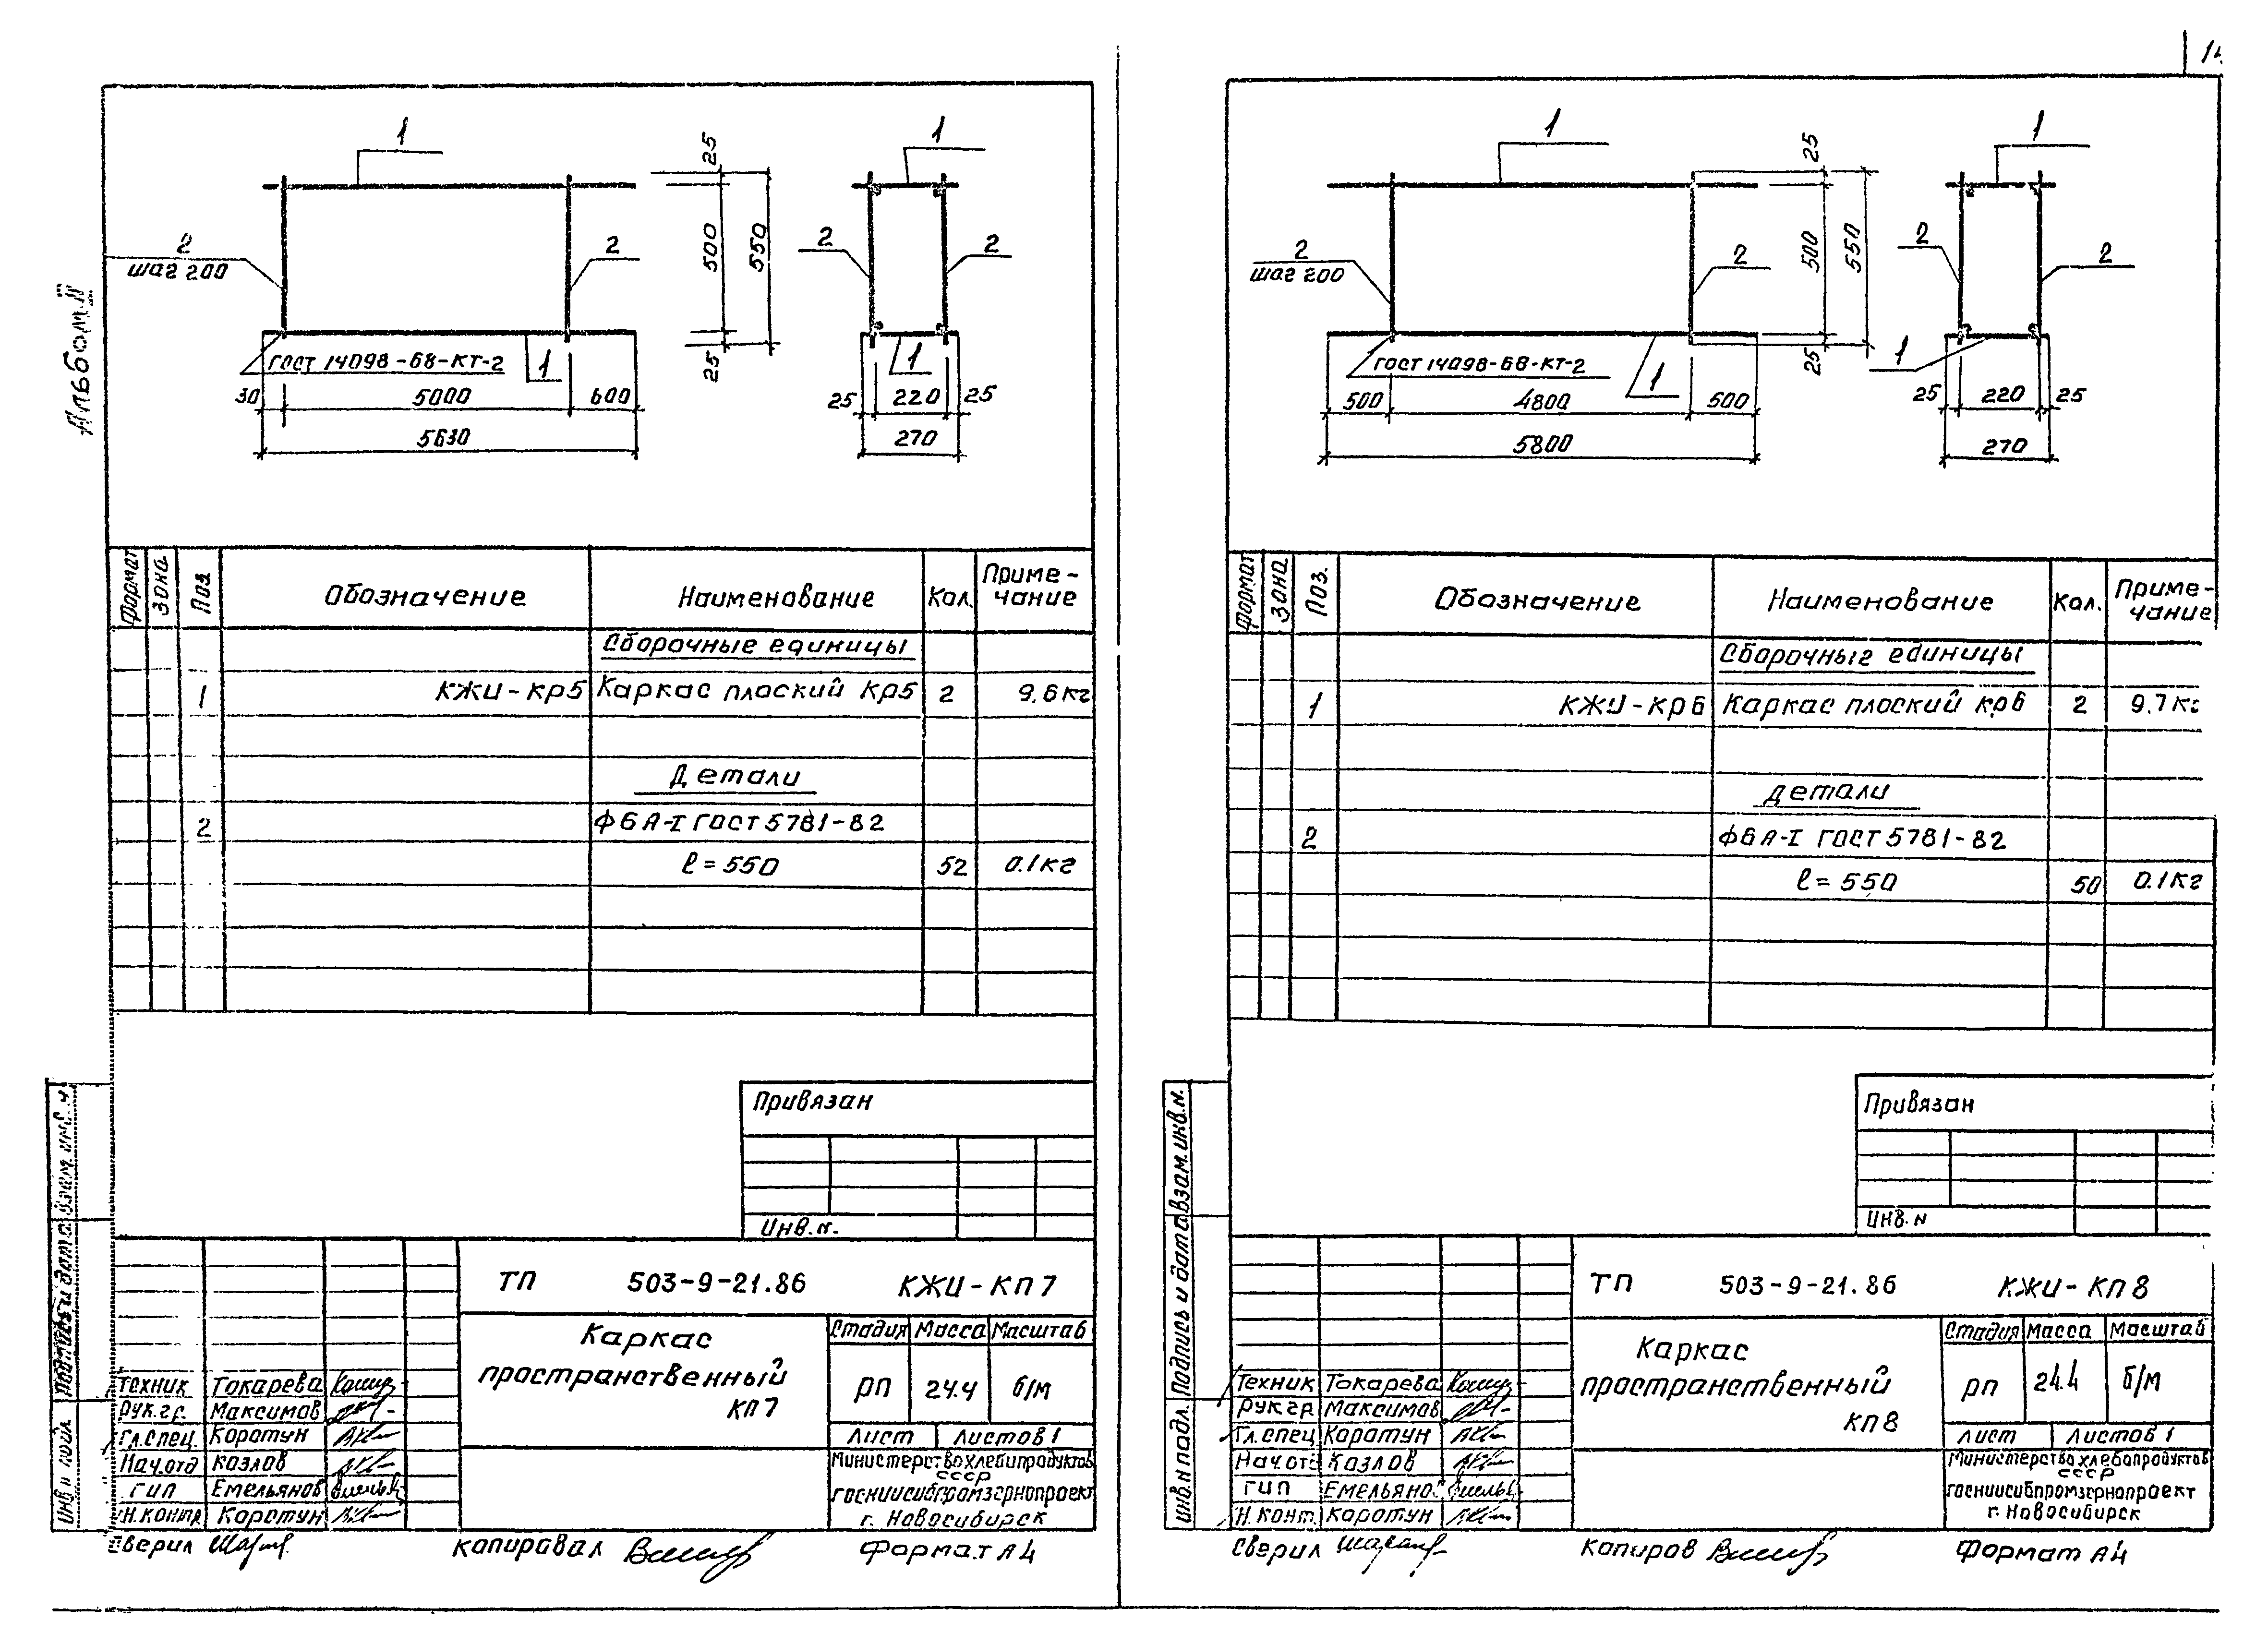 Альбом II
1
1
25
500
550
25
2
шаг 200
2
2
2
ГОСТ 14098-68-КТ-2
1
1
30
5000
600
5630
25
220
25
270
Формат
Зона
Поз
Обозначение
Наименование
Кол.
Приме-
чание
Сборочные единицы
1
КЖИ-КР5
Каркас плоский КР5
2
9.6кг
Детали
2
Ф6А-I ГОСТ 5781-82
ℓ=550
52
0.1кг
Привязан
Инв.н.
ТП
503-9-21.86
КЖИ-КП7
Каркас
пространственный
КП7
Стадия
Масса
Масштаб
РП
24.4
б/м
Лист
Листов 1
Министерство хлебопродуктов
СССР
ГОСНИИСИБПРОМЗЕРНОПРОЕКТ
г. Новосибирск
Техник Токарева
Рук.гр. Максимов
Гл.спец. Коротун
Нач.отд Козлов
ГИП Емельянов
Н.контр. Коротун
Сверил
Копировал
Формат А4
Взам. инв. н
Подпись и дата
Инв н подл
1
1
25
500
550
25
2
шаг 200
2
2
2
ГОСТ 14098-68-КТ-2
1
1
500
4800
500
5800
25
220
25
270
Формат
Зона
Поз.
Обозначение
Наименование
Кол.
Приме-
чание
Сборочные единицы
1
КЖИ-КР6
Каркас плоский КР6
2
9.7кг
Детали
2
Ф6А-I ГОСТ 5781-82
ℓ=550
50
0.1кг
Привязан
Инв. н
ТП
503-9-21.86
КЖИ-КП8
Каркас
пространственный
КП8
Стадия
Масса
Масштаб
РП
24.4
б/м
Лист
Листов 1
Министерство хлебопродуктов
СССР
ГОСНИИСИБПРОМЗЕРНОПРОЕКТ
г. Новосибирск
Техник Токарева
Рук.гр Максимов
Гл.спец Коротун
Нач.отд Козлов
ГИП Емельянов
Н.конт. Коротун
Сверил
Копиров
Формат А4
Взам. инв. н.
Подпись и дата
Инв. н подл.